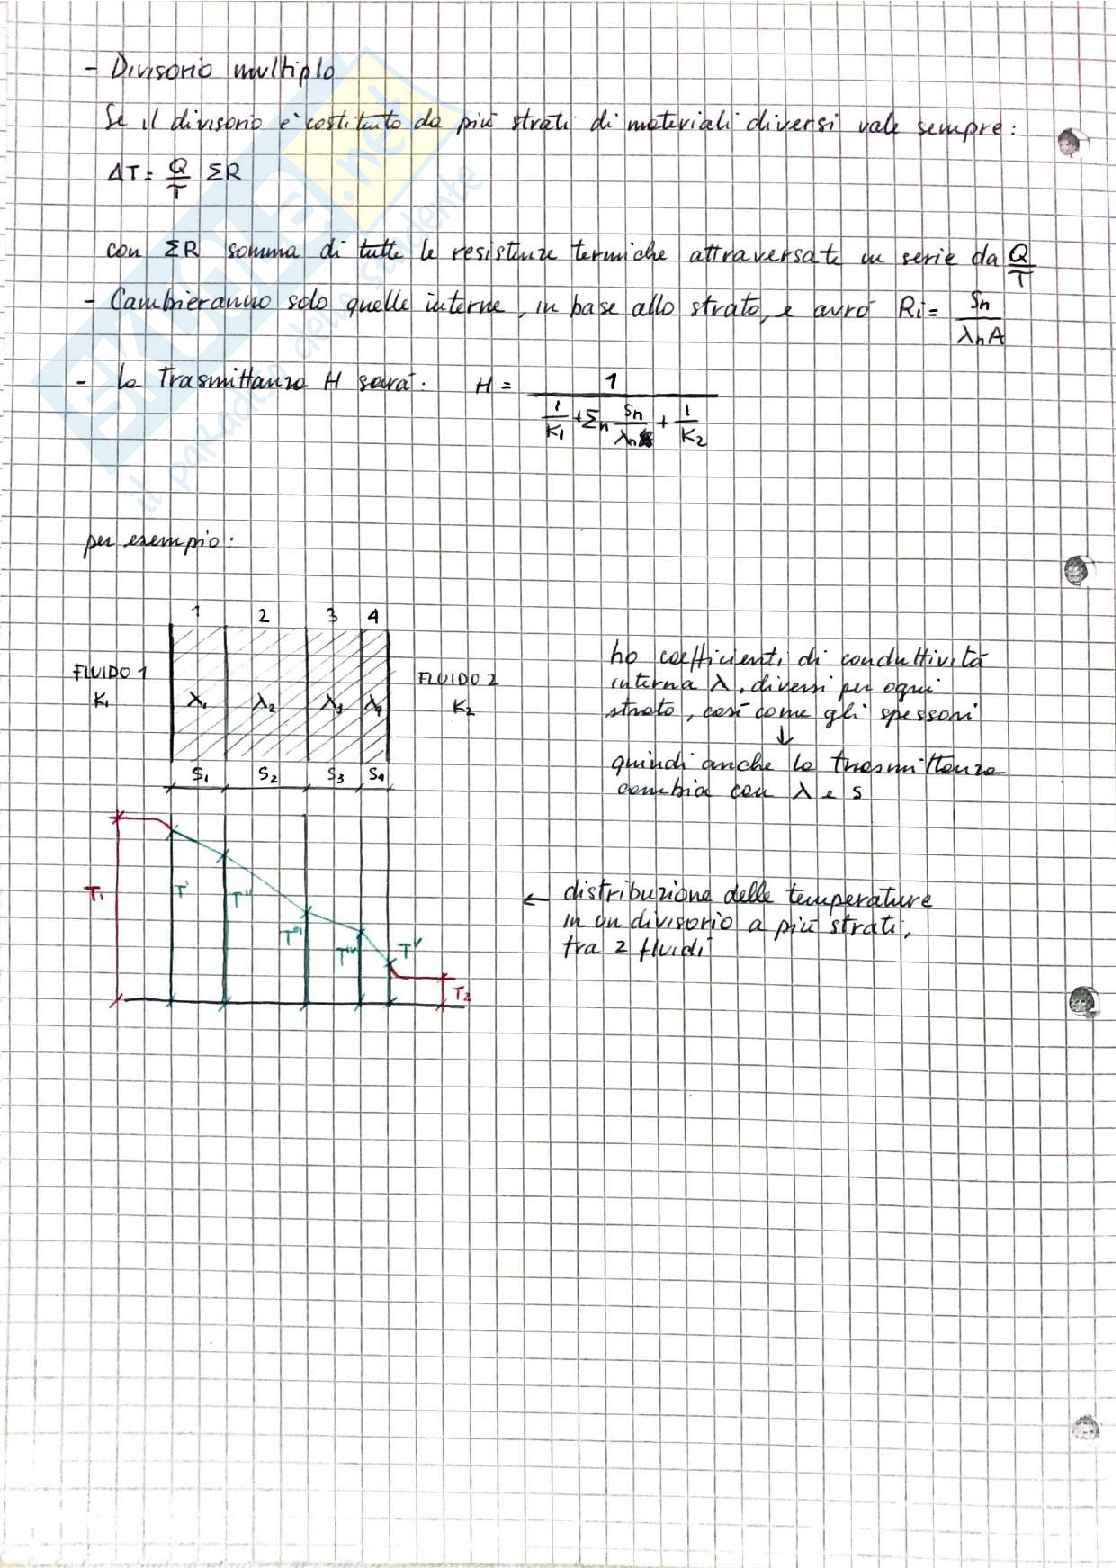 - Divisorio multiplo
Se il divisorio è costituito da più strati di materiali diversi vale sempre:
ΔT = Q/T ΣR
con ΣR somma di tutte le resistenze termiche attraversate in serie da Q/T
- Cambieranno solo quelle interne, in base allo strato, e avrò Ri = Sn/λnA
- La Trasmittanza H sarà: H = 1/(1/K1 + Σn Sn/λn + 1/K2)
per esempio:
1 2 3 4
FLUIDO 1
K1
λ1 λ2 λ3 λ4
FLUIDO 2
K2
S1 S2 S3 S4
ho coefficienti di conduttività
interna λ, diversi per ogni
strato, così come gli spessori
↓
quindi anche la trasmittanza
cambia con λ e s
T1 T' T'' T''' T'V T' T2
← distribuzione delle temperature
in un divisorio a più strati,
tra 2 fluidi
SKUOLA.net
il paradiso dello studente